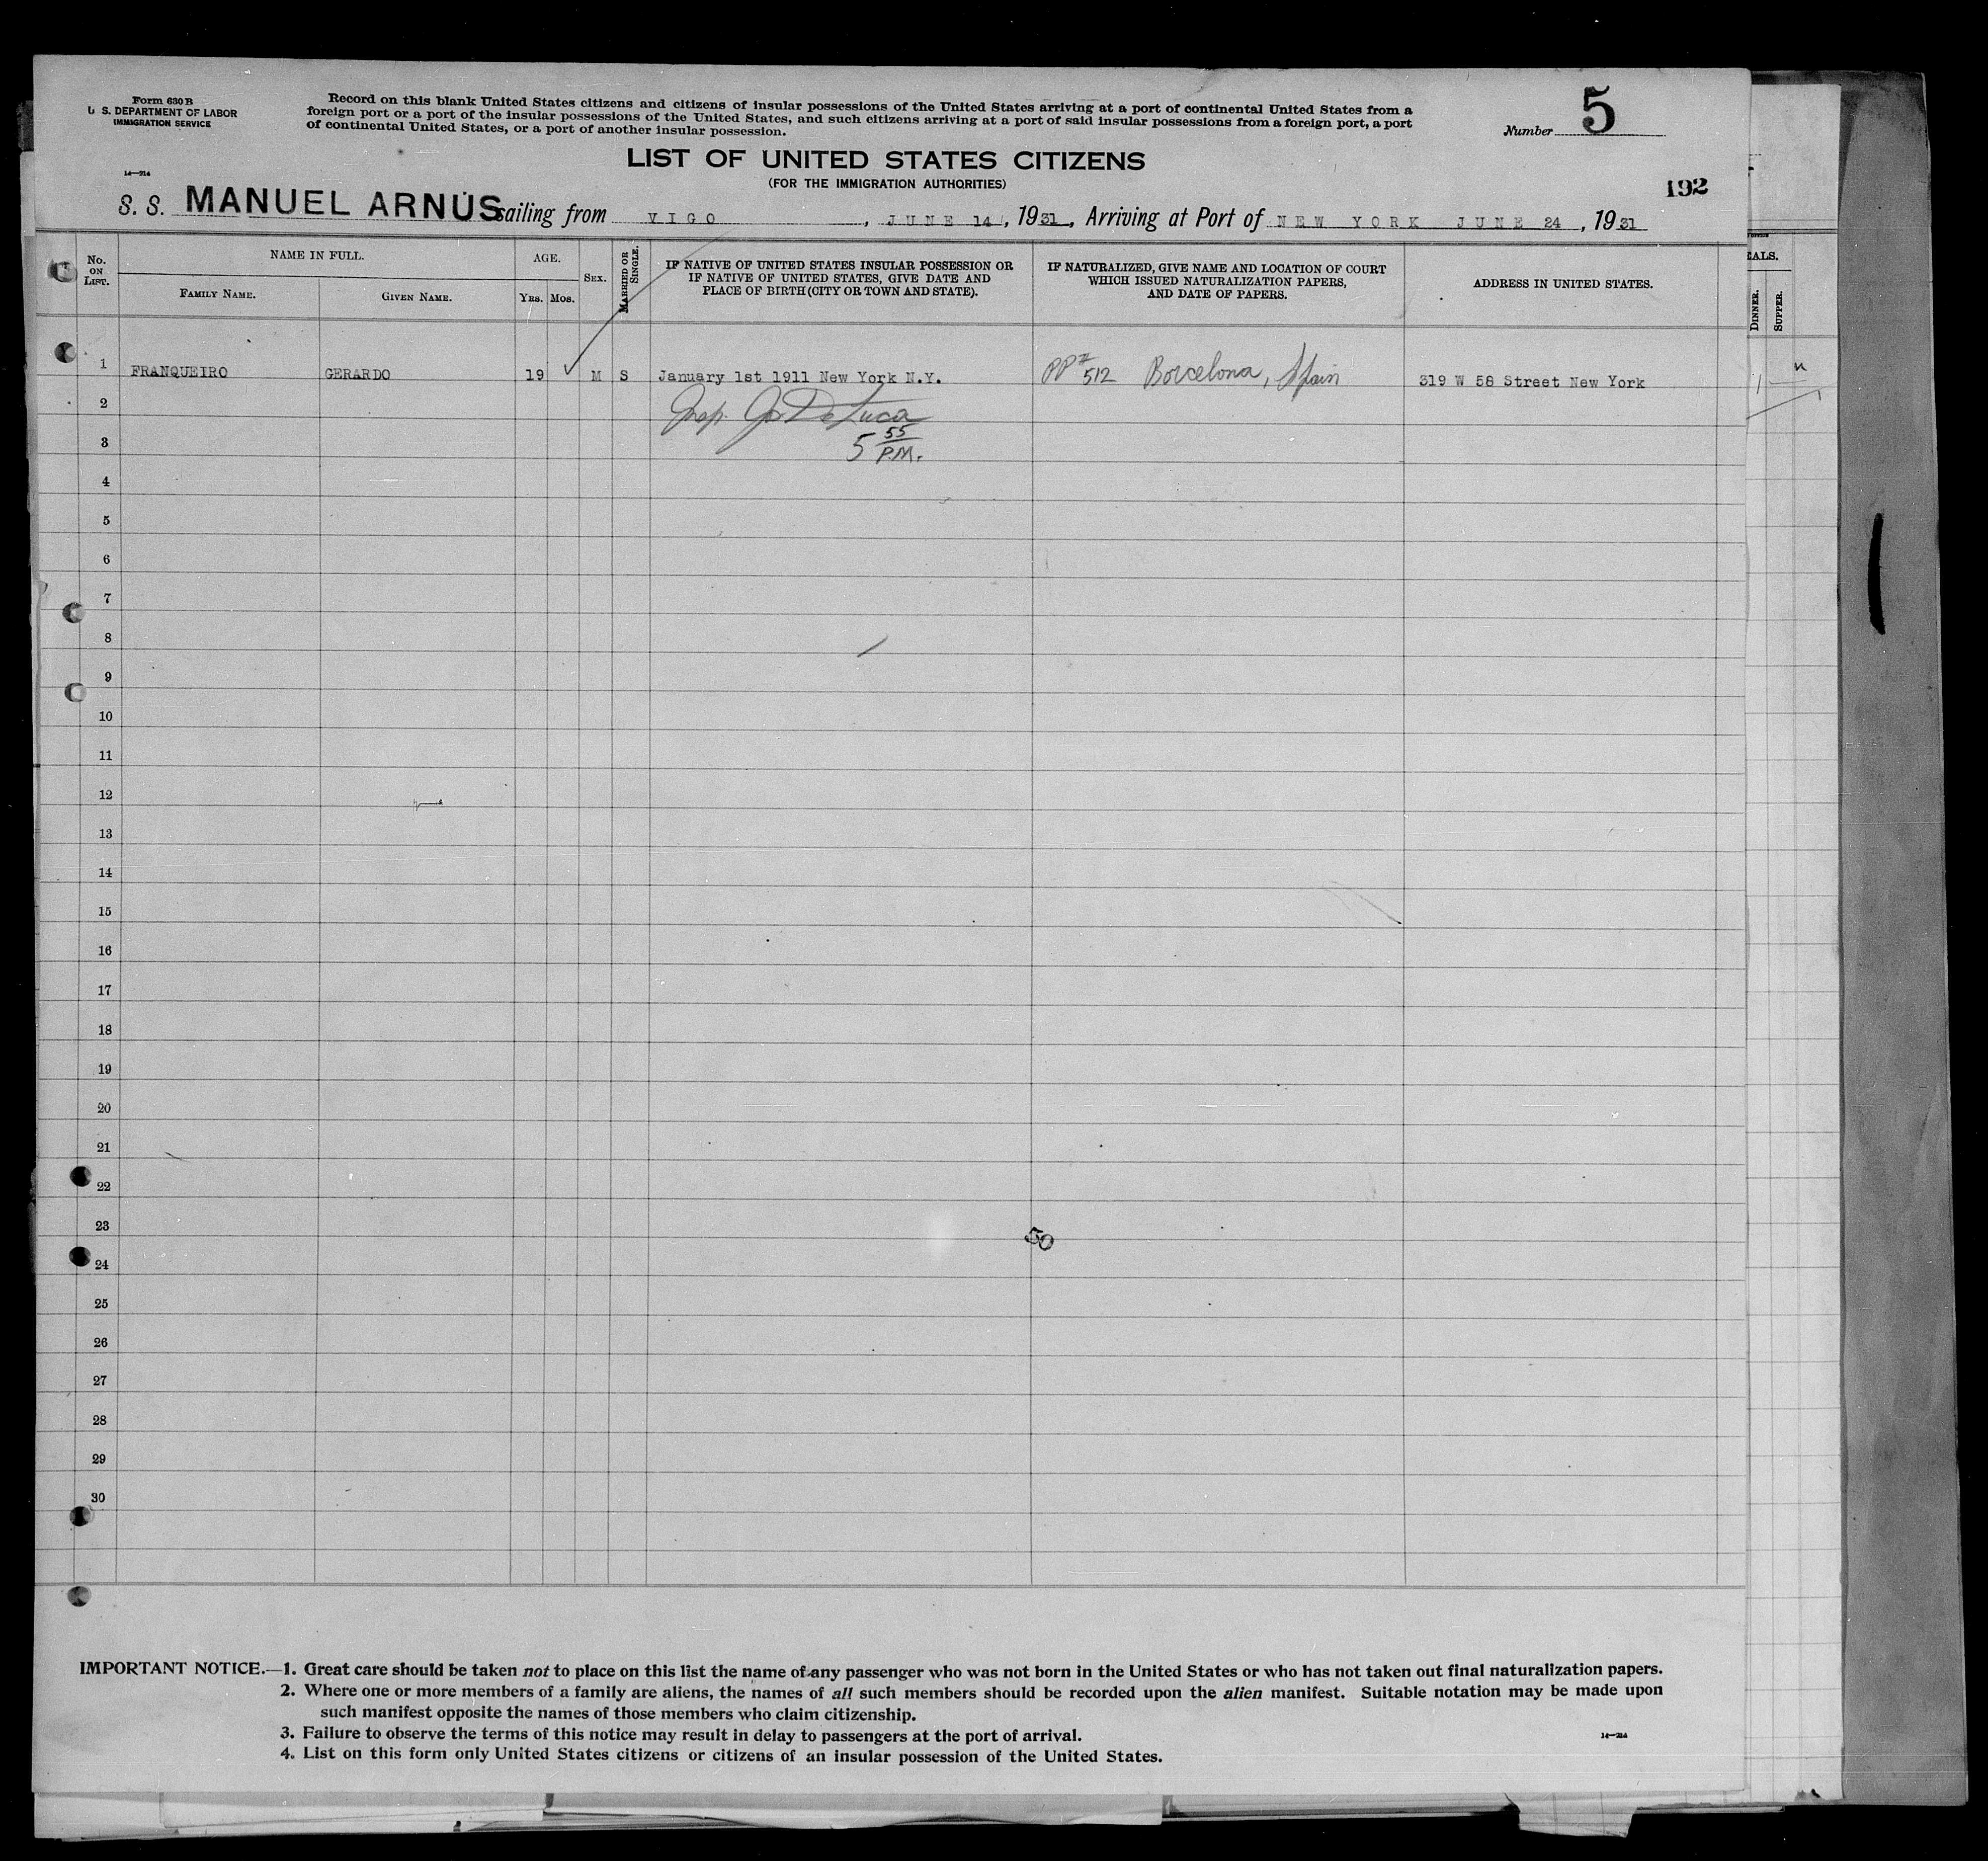 Form 630 B
U. S. DEPARTMENT OF LABOR
IMMIGRATION SERVICE
14—914
Record on this blank United States citizens and citizens of insular possessions of the United States arriving at a port of continental United States from a
foreign port or a port of the insular possessions of the United States, and such citizens arriving at a port of said insular possessions from a foreign port, a port
of continental United States, or a port of another insular possession.
Number 5
LIST OF UNITED STATES CITIZENS
(FOR THE IMMIGRATION AUTHORITIES)
192
S. S. MANUEL ARNÚS sailing from VIGO, JUNE 14, 1931, Arriving at Port of NEW YORK JUNE 24, 1931
No. ON LIST.
NAME IN FULL.
FAMILY NAME.
GIVEN NAME.
AGE.
YRS. MOS.
SEX.
MARRIED OR SINGLE.
IF NATIVE OF UNITED STATES INSULAR POSSESSION OR
IF NATIVE OF UNITED STATES, GIVE DATE AND
PLACE OF BIRTH (CITY OR TOWN AND STATE).
IF NATURALIZED, GIVE NAME AND LOCATION OF COURT
WHICH ISSUED NATURALIZATION PAPERS,
AND DATE OF PAPERS.
ADDRESS IN UNITED STATES.
DINNER.
SUPPER.
1 FRANQUEIRO GERARDO 19 M S January 1st 1911 New York N.Y. PP# 512 Barcelona, Spain 319 W 58 Street New York
2 Insp. De Luca
3 5 55 P.M.
4
5
6
7
8
9
10
11
12
13
14
15
16
17
18
19
20
21
22
23
50
24
25
26
27
28
29
30
IMPORTANT NOTICE.—1. Great care should be taken not to place on this list the name of any passenger who was not born in the United States or who has not taken out final naturalization papers.
2. Where one or more members of a family are aliens, the names of all such members should be recorded upon the alien manifest. Suitable notation may be made upon
such manifest opposite the names of those members who claim citizenship.
3. Failure to observe the terms of this notice may result in delay to passengers at the port of arrival.
4. List on this form only United States citizens or citizens of an insular possession of the United States.
14—214